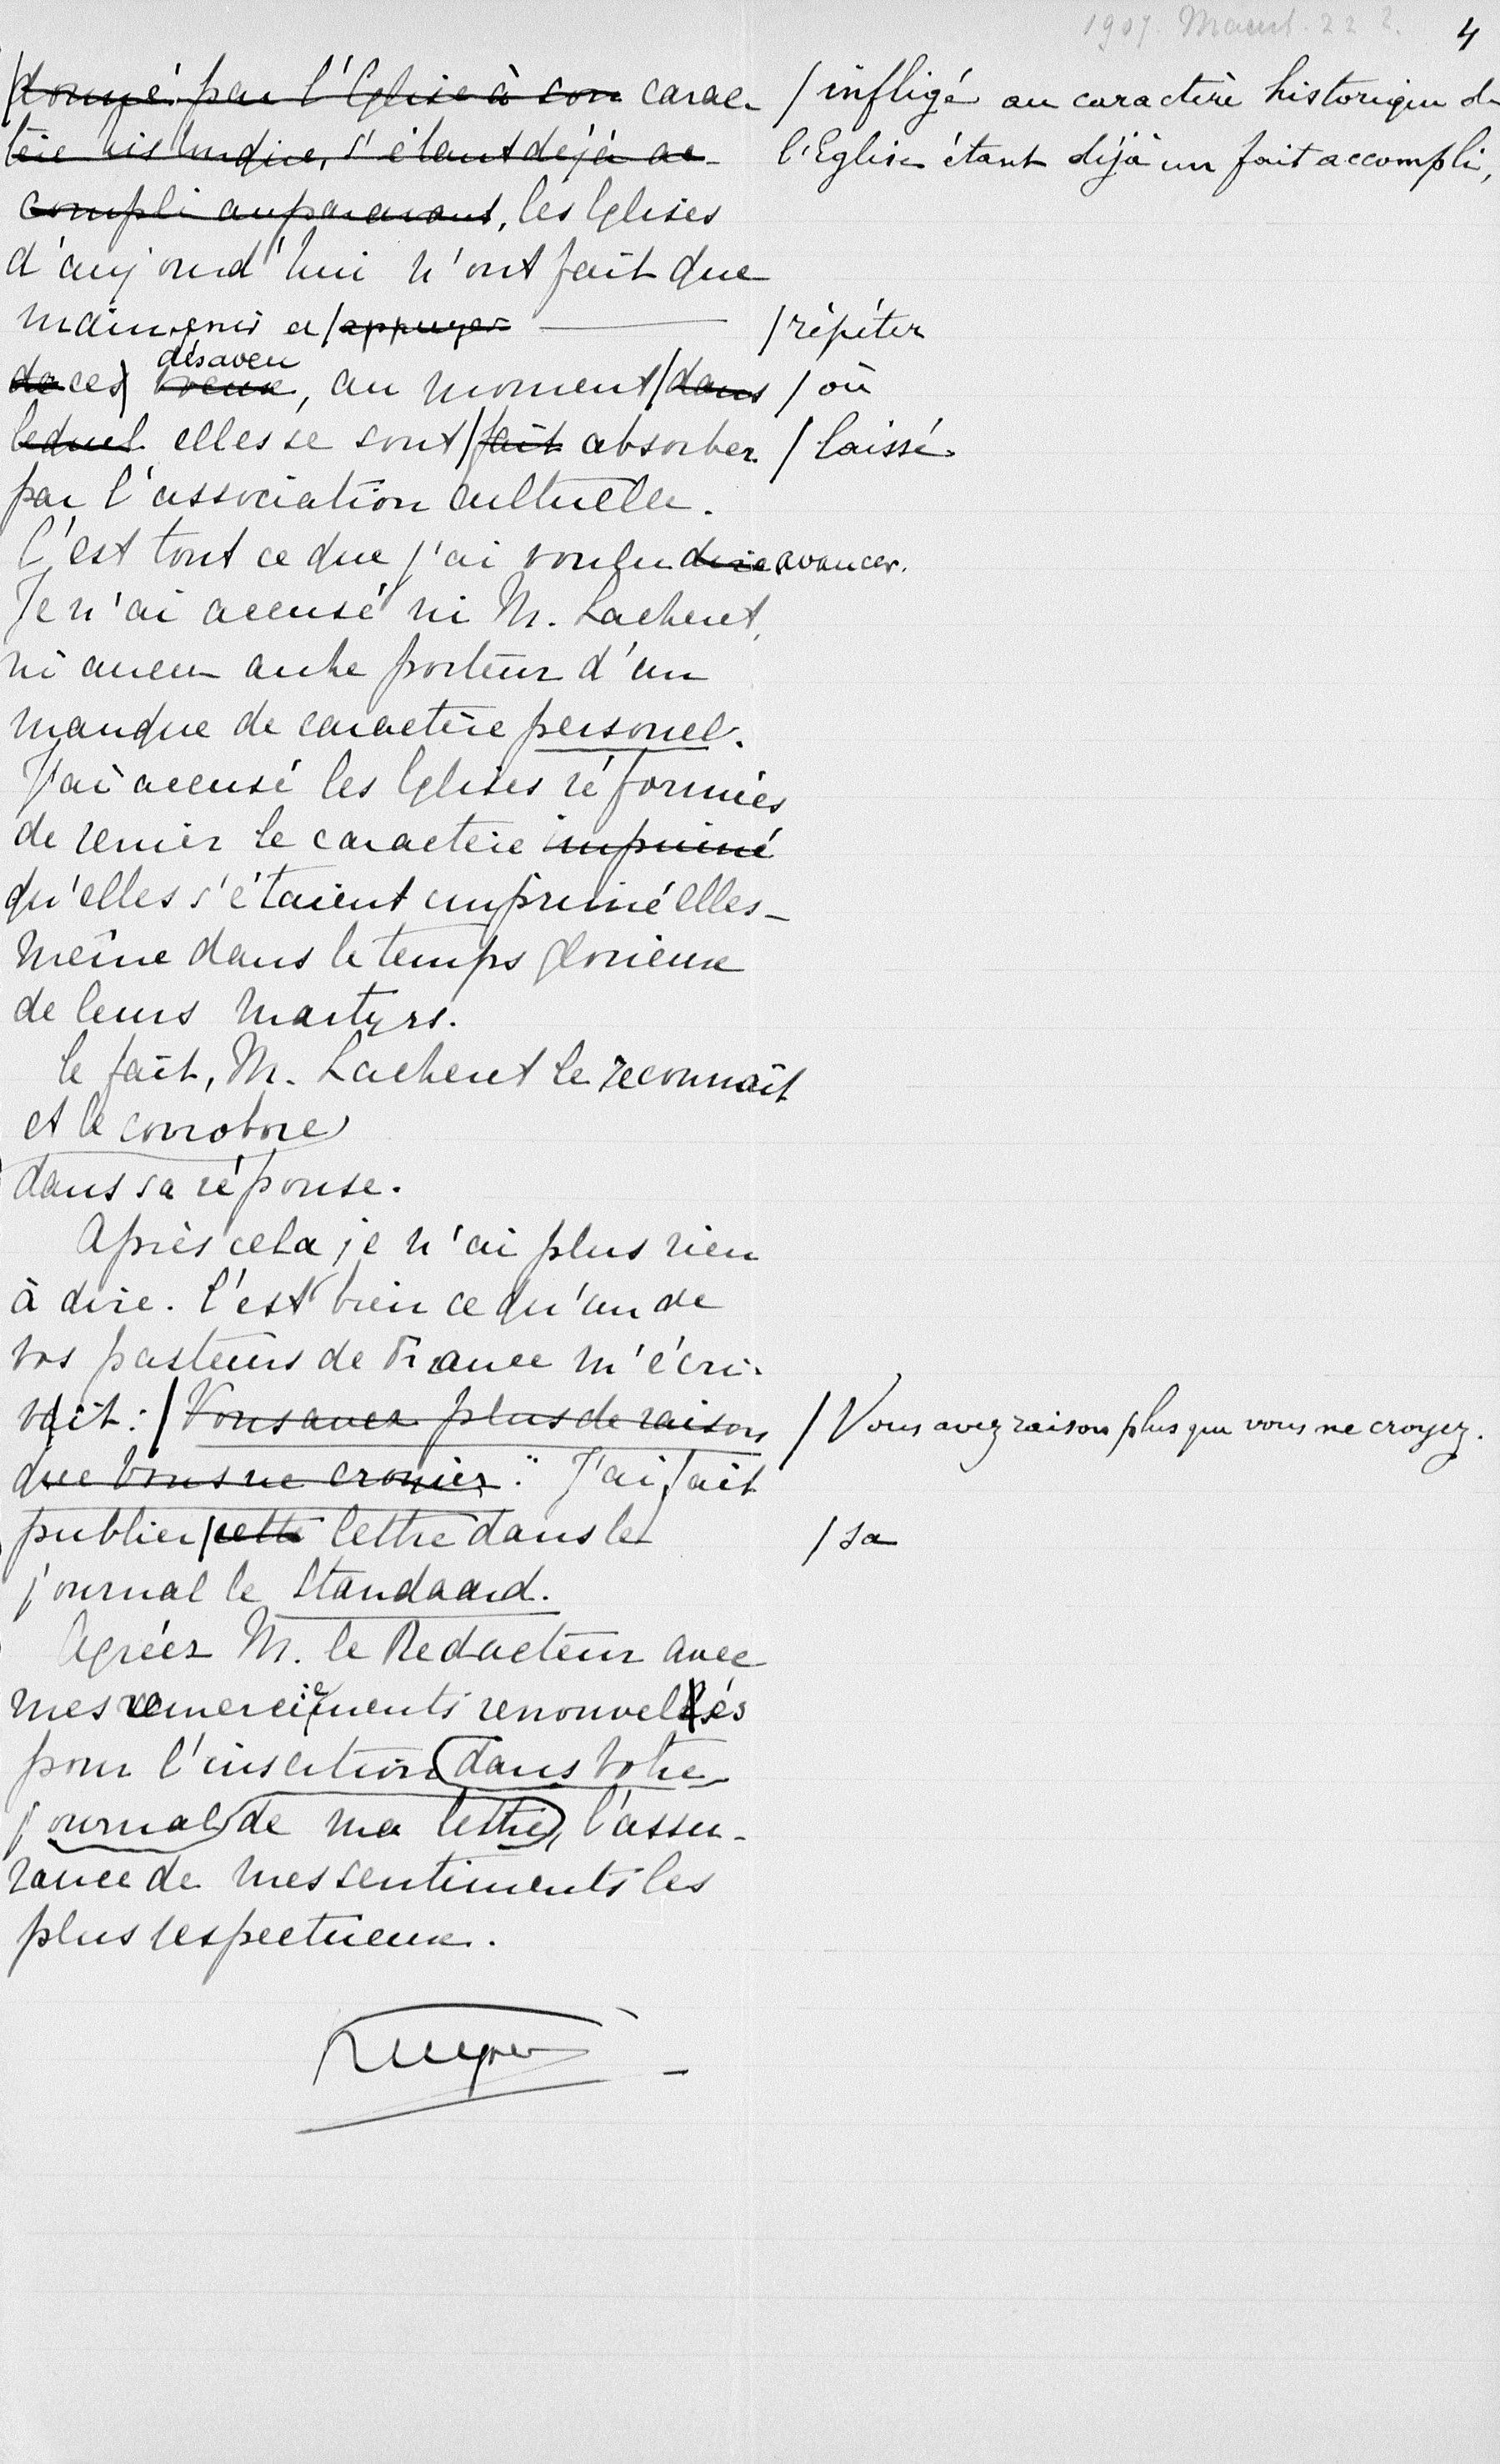 1907. Maart. 22 2. 4
/donné par l'Eglise à son carac- / infligé au caractère historique de
tère historique, s'étant déjà ac- l'Eglise étant déjà un fait accompli,
compli auparavant, les Eglises
d'aujourd'hui n'ont fait que
maintenir et /appuyer / répéter
de ce désaveu, au moment /dans / où
lequel elles se sont /fait absorber / laissé
par l'association cultuelle.
C'est tout ce que j'ai voulu dire avancer.
Je n'ai accusé ni M. Lacheret,
ni aucun autre porteur d'un
manque de caractère personel.
J'ai accusé les Eglises réformées
de renier le caractère imprimé
qu'elles s'étaient imprimé elles-
même dans le temps glorieux
de leurs martyrs.
Le fait, M. Lacheret le reconnaît
et le corrobore
dans sa réponse.
Après cela je n'ai plus rien
à dire. C'est bien ce qu'un de
vos pasteurs de France m'écri-
vait: /Vous avez plus de raison / Vous avez raison plus que vous ne croyez.
que vous ne croyiez." J'ai fait
publier /cette lettre dans le / sa
journal le Standaard.
Agréez M. le Redacteur avec
mes remerciements renouvelés
pour l'insertion dans votre
journal de ma lettre, l'assu-
rance de mes sentiments les
plus respectueux.
Kuyper